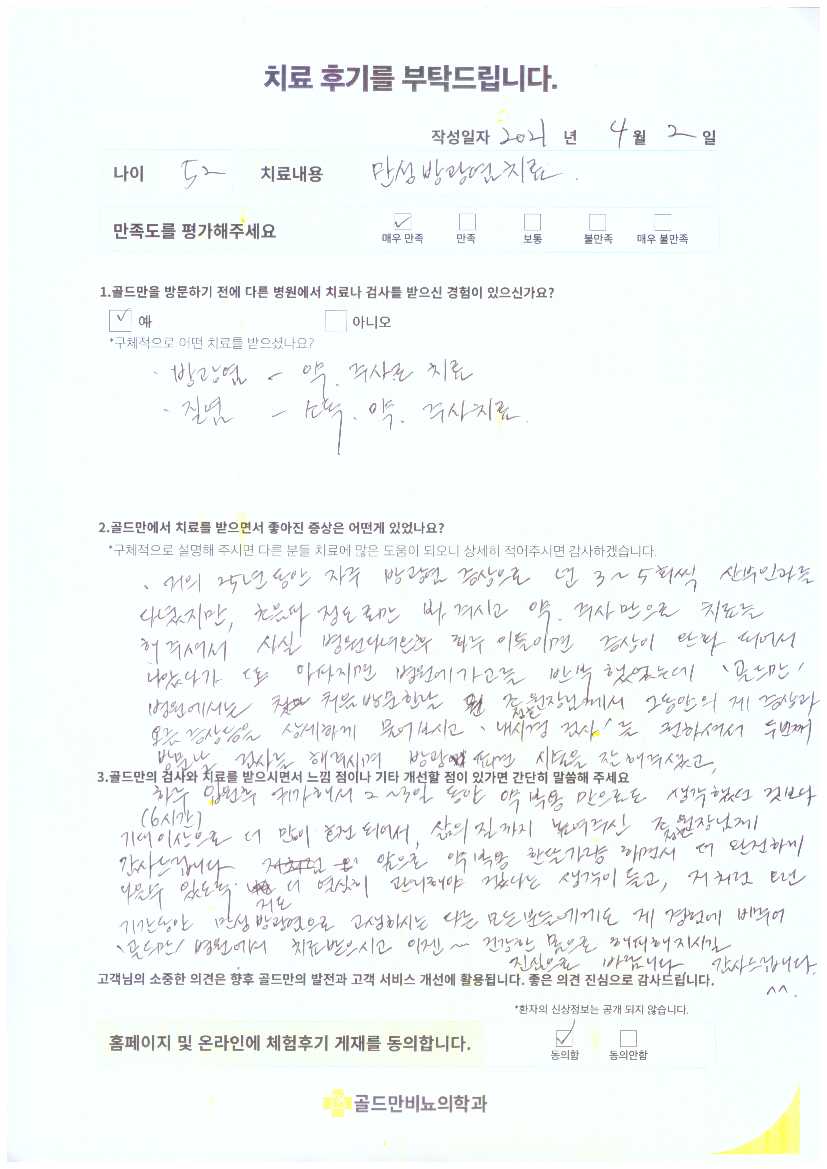 치료 후기를 부탁드립니다.
작성일자 2021 년 4 월 2 일
나이 52 치료내용 만성방광염치료.
만족도를 평가해주세요 매우 만족 만족 보통 불만족 매우 불만족
1.골드만을 방문하기 전에 다른 병원에서 치료나 검사를 받으신 경험이 있으신가요?
예 아니오
*구체적으로 어떤 치료를 받으셨나요?
· 방광염 - 약. 주사로 치료
· 질염 - 소독. 약. 주사치료.
2.골드만에서 치료를 받으면서 좋아진 증상은 어떤게 있었나요?
*구체적으로 설명해 주시면 다른 분들 치료에 많은 도움이 되오니 상세히 적어주시면 감사하겠습니다.
· 거의 25년동안 자주 방광염 증상으로 년 3~5회씩 산부인과를
다녔지만, 초음파 정도로만 봐주시고 약. 주사만으로 치료를
해주셔서 사실 병원다녀온후 하루 이틀이면 증상이 완화 되어서
나았다가 또 아파지면 병원에가고를 반복했었는데 '골드만'
병원에서는 처음방문한날 조 원장님께서 그동안의 제 증상과
모든 증상들을 상세하게 물어보시고 '내시경 검사'를 권하셔서 두번째
방문날 검사를 해주시며 방광 시술을 잘해주셨고,
3.골드만의 검사와 치료를 받으시면서 느낌 점이나 기타 개선할 점이 있가면 간단히 말씀해 주세요
하루 입원후 귀가해서 2~3일 동안 약 복용 만으로도 생각했던 것보다
(6시간)
기대이상으로 더 많이 호전 되어서, 삶의질까지 높여주신 조 원장님께
감사드립니다 앞으로 약복용 한달가량 하면서 더 완전하게
나을수 있도록 저도 더 열심히 관리해야 겠다는 생각이 들고, 저처럼 오랜
기간동안 만성방광염으로 고생하시는 다른 모든분들에게도 제 경험에 비추어
'골드만' 병원에서 치료받으시고 이젠~ 건강한 몸으로 해피해지시길
진심으로 바랍니다 감사드립니다.
^^.
고객님의 소중한 의견은 향후 골드만의 발전과 고객 서비스 개선에 활용됩니다. 좋은 의견 진심으로 감사드립니다.
*환자의 신상정보는 공개 되지 않습니다.
홈페이지 및 온라인에 체험후기 게재를 동의합니다. 동의함 동의안함
골드만비뇨의학과